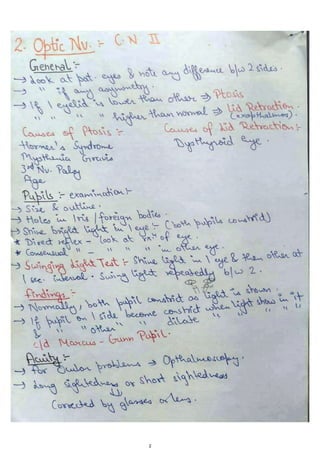 2. Optic Nv. :- C N II
General :-
→ Look at pat. eyes & note any difference b/w 2 sides.
→ " if any asymmetry.
→ If 1 eyelid is lower than other ⇒ Ptosis
" " " " higher than normal ⇒ Lid Retraction.
(exopthalmos)
Causes of Ptosis :-
Horner's Syndrome
Mysthenia Gravis
3rd Nv. Palsy
Age.
Causes of Lid Retraction :-
Dysthyroid Eye.
Pupils :- examination :-
→ Size & outline.
→ Holes in Iris / foreign bodies.
→ Shine bright light in 1 eye :- (both pupils constrict)
* Direct reflex - look at rxⁿ of eye.
* Consensual " - " " " in other eye.
→ Swinging Light Test :- Shine light in 1 eye & then other at
1 sec. interval. Swing light repeatedly b/w 2.
Findings :-
→ Normally, both pupil constrict as light is shown.
→ If pupil on 1 side become constrict when light shown in it
& " " other " " dilate " " "
c/d Marcus - Gunn Pupil.
Acuity :-
→ for Ocular problems → Opthalmoscopy.
→ Long sightedness or Short sightedness
Corrected by glasses or lens.
2